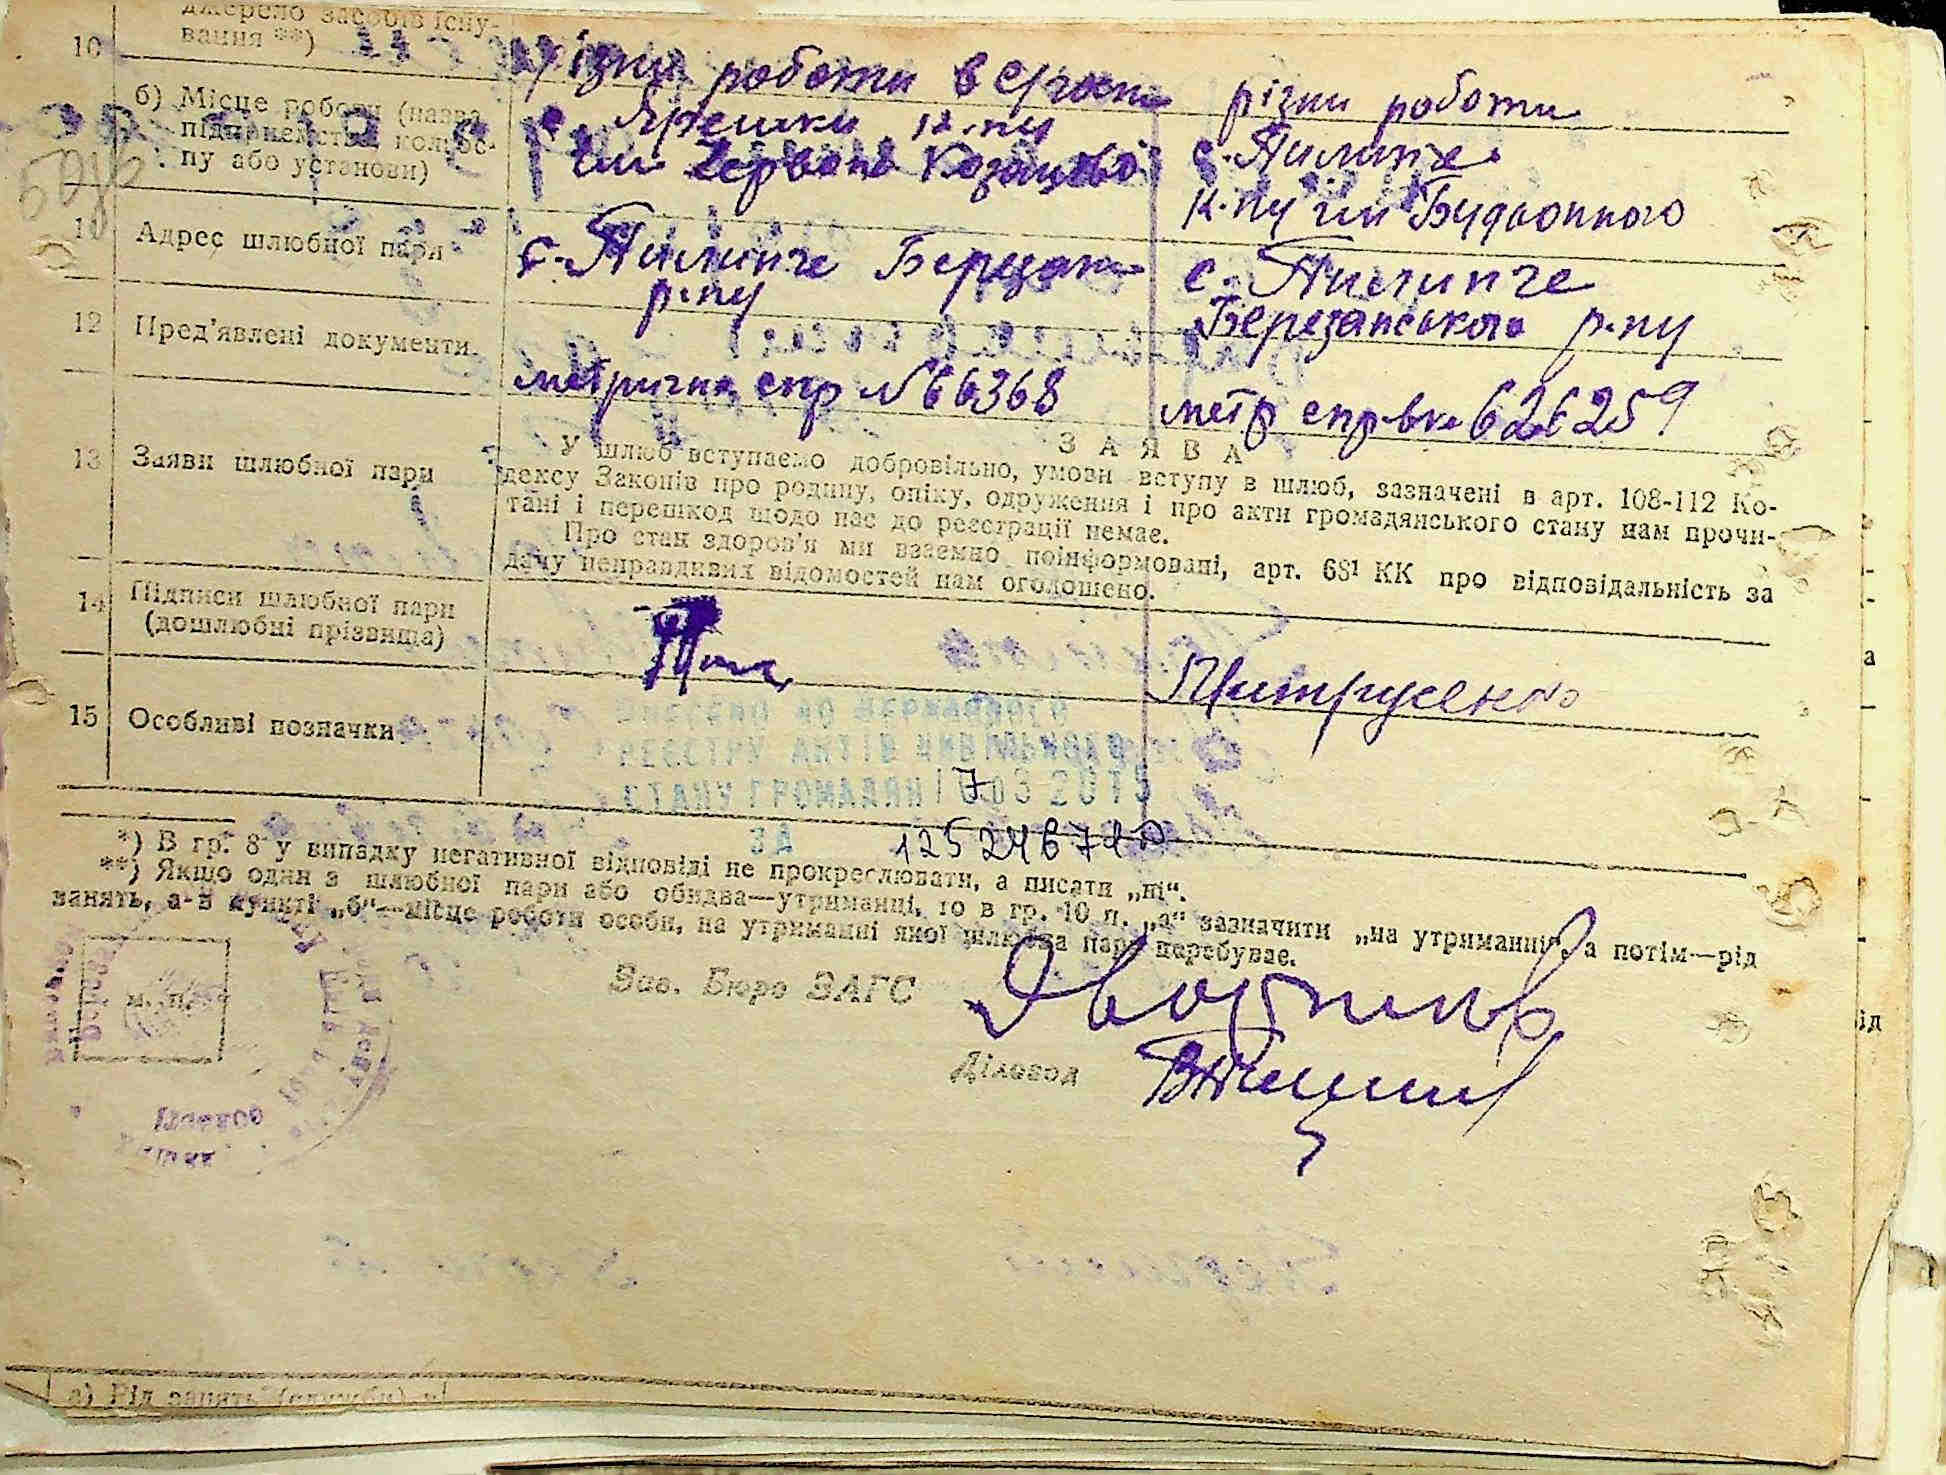 джерело засобів існу-
10 вання **)
різни роботи в
різни роботи
б) Місце роботи (назва
підприємства, колгос-
пу або установи)
с. Ярешки к-пу
ім Червоно Козацтва
с. Пилипче
к-пу ім Будьонного
11 Адрес шлюбної пари
с. Пилипче
р-пу
с. Пилипче
Березанського р-пу
12 Пред'явлені документи
метрична спр №66368
метр спр-вка 626259
ЗАЯВА
13 Заяви шлюбної пари
У шлюб вступаємо добровільно, умови вступу в шлюб, зазначені в арт. 108-112 Ко-
дексу Законів про родину, опіку, одруження і про акти громадянського стану нам прочи-
тані і перешкод щодо нас до реєстрації немає.
Про стан здоров'я ми взаємно поінформовані, арт. 68¹ КК про відповідальність за
дачу неправдивих відомостей нам оголошено.
14 Підписи шлюбної пари
(дошлюбні прізвища)
15 Особливі позначки
ВНЕСЕНО ДО ДЕРЖАВНОГО
РЕЄСТРУ АКТІВ ЦИВІЛЬНОГО
СТАНУ ГРОМАДЯН
ЗА
*) В гр. 8 у випадку негативної відповіді не прокреслювати, а писати „ні“.
**) Якщо один з шлюбної пари або обидва—утриманці, то в гр. 10 п. „а“ зазначити „на утриманні“, а потім—рід
занять, а в пункті „б“—місце роботи особи, на утриманні якої шлюбна пара перебуває.
М. П.
Зав. Бюро ЗАГС
Діловод
а) Рід занять